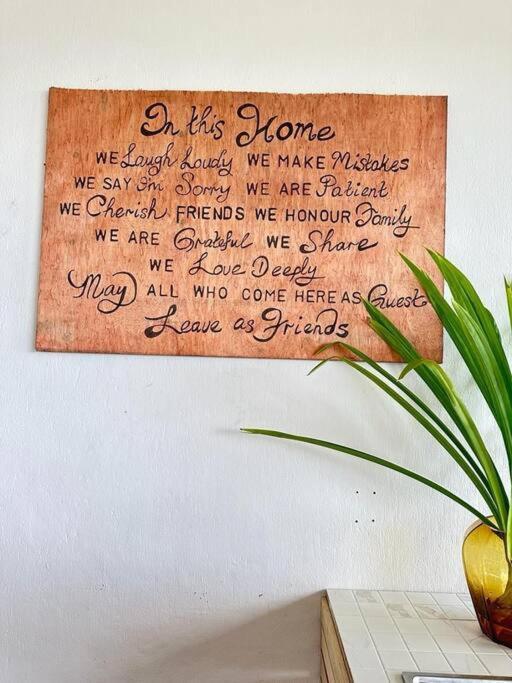 In this Home
WE Laugh Loudly WE MAKE Mistakes
WE SAY I'm Sorry WE ARE Patient
WE Cherish FRIENDS WE HONOUR Family
WE ARE Grateful WE Share
WE Love Deeply
May ALL WHO COME HERE AS Guest
Leave as Friends